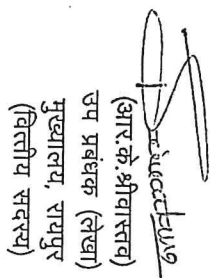 (आर.के.श्रीवास्तव)
उप प्रबंधक (लेखा)
मुख्यालय, रायपुर
(वित्तीय सदस्य)